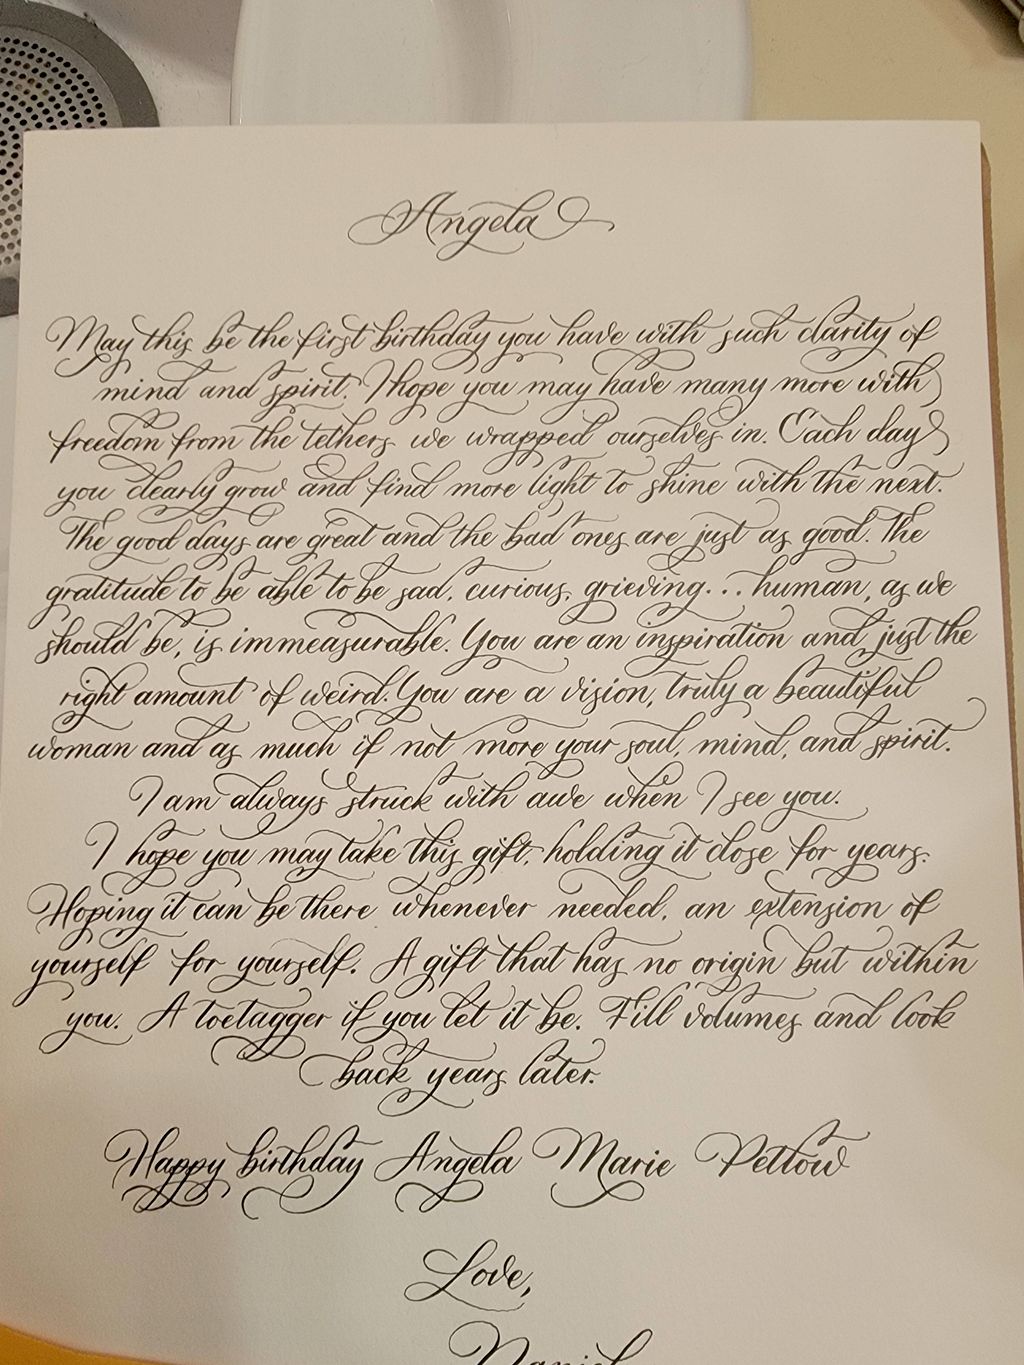 Angela
May this be the first birthday you have with such clarity of
mind and spirit. I hope you may have many more with
freedom from the tethers we wrapped ourselves in. Each day
you clearly grow and find more light to shine with the next.
The good days are great and the bad ones are just as good. The
gratitude to be able to be sad, curious, grieving... human, as we
should be, is immeasurable. You are an inspiration and just the
right amount of weird. You are a vision, truly a beautiful
woman and as much if not more your soul, mind, and spirit.
I am always struck with awe when I see you.
I hope you may take this gift, holding it close for years.
Hoping it can be there whenever needed, an extension of
yourself for yourself. A gift that has no origin but within
you. A toetagger if you let it be. Fill volumes and look
back years later.
Happy birthday Angela Marie Petlow
Love,
Daniel